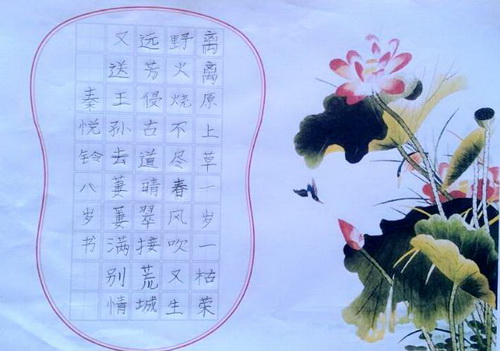 离离原上草一岁一枯荣
野火烧不尽春风吹又生
远芳侵古道晴翠接荒城
又送王孙去萋萋满别情
秦悦铃八岁书